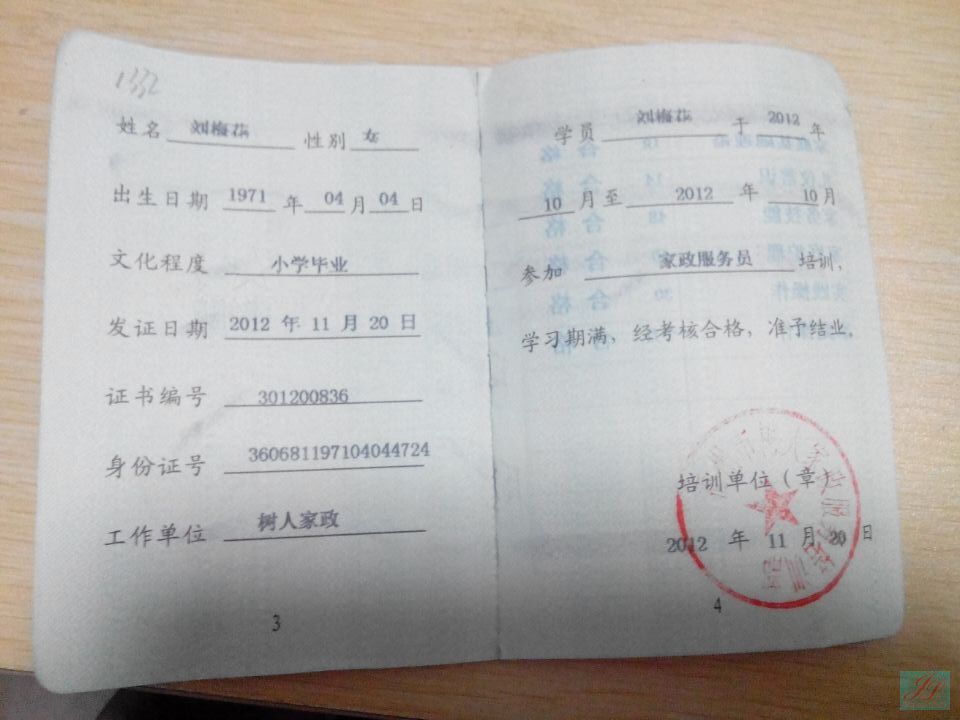 1332
姓名 刘梅花 性别 女
出生日期 1971 年 04 月 04 日
文化程度 小学毕业
发证日期 2012 年 11 月 20 日
证书编号 301200836
身份证号 360681197104044724
工作单位 树人家政
3
学员 刘梅花 于 2012 年
10 月至 2012 年 10 月
参加 家政服务员 培训,
学习期满, 经考核合格, 准予结业。
培训单位(章)
2012 年 11 月 20 日
4